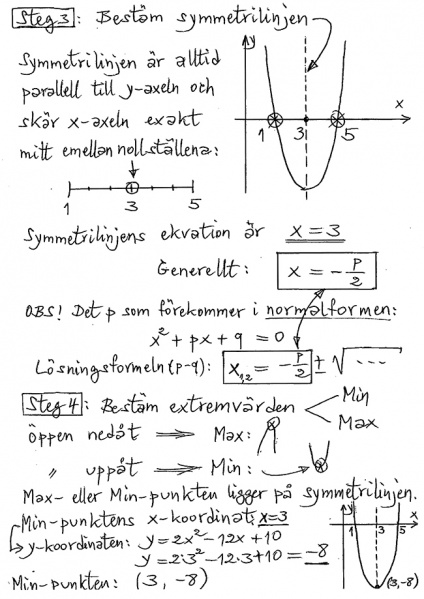 Steg 3: Bestäm symmetrilinjen
Symmetrilinjen är alltid
parallell till y-axeln och
skär x-axeln exakt
mitt emellan nollställena:
1 3 5
y
x
1 3 5
Symmetrilinjens ekvation är x = 3
Generellt: x = -p/2
OBS! Det p som förekommer i normalformen:
x² + px + q = 0
Lösningsformeln (p-q): x₁,₂ = -p/2 ± √...
Steg 4: Bestäm extremvärden Min
Max
öppen nedåt ⇒ Max:
" uppåt ⇒ Min:
Max- eller Min-punkten ligger på symmetrilinjen.
Min-punktens x-koordinat: x=3
y-koordinaten: y = 2x² - 12x + 10
y = 2·3² - 12·3 + 10 = -8
Min-punkten: (3, -8)
y
x
1 3 5
(3,-8)